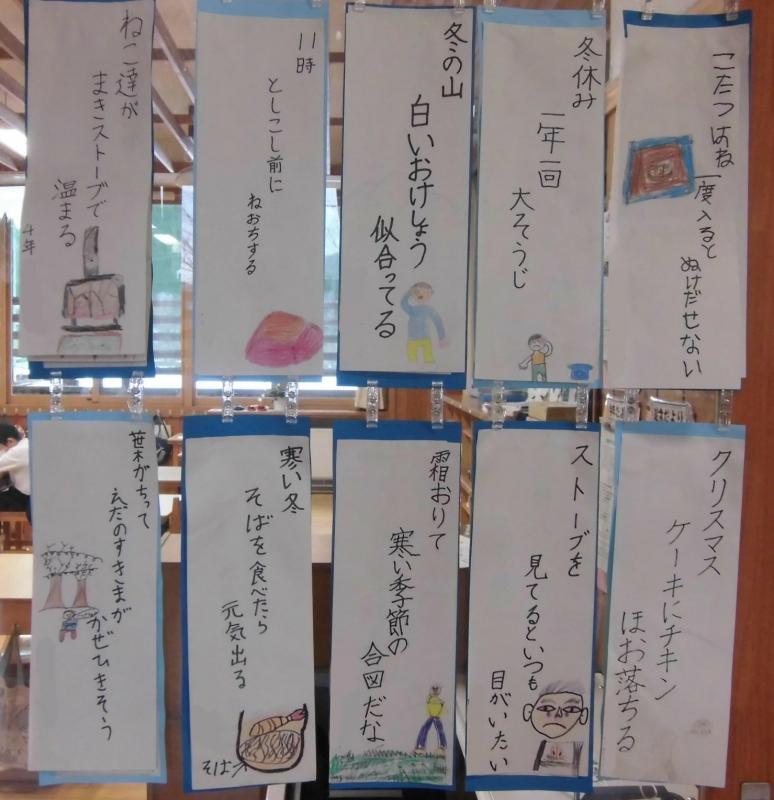 こたつはね
一度入ると
ぬけだせない
冬休み
一年一回
大そうじ
冬の山
白いおけしょう
似合ってる
11時
としこし前に
ねおちする
ねこ達が
まきストーブで
温まる
クリスマス
ケーキにチキン
ほお落ちる
ストーブを
見てるといつも
目がいたい
霜おりて
寒い季節の
合図だな
寒い冬
そばを食べたら
元気出る
そば
葉がちって
えだのすきまが
かぜひきそう